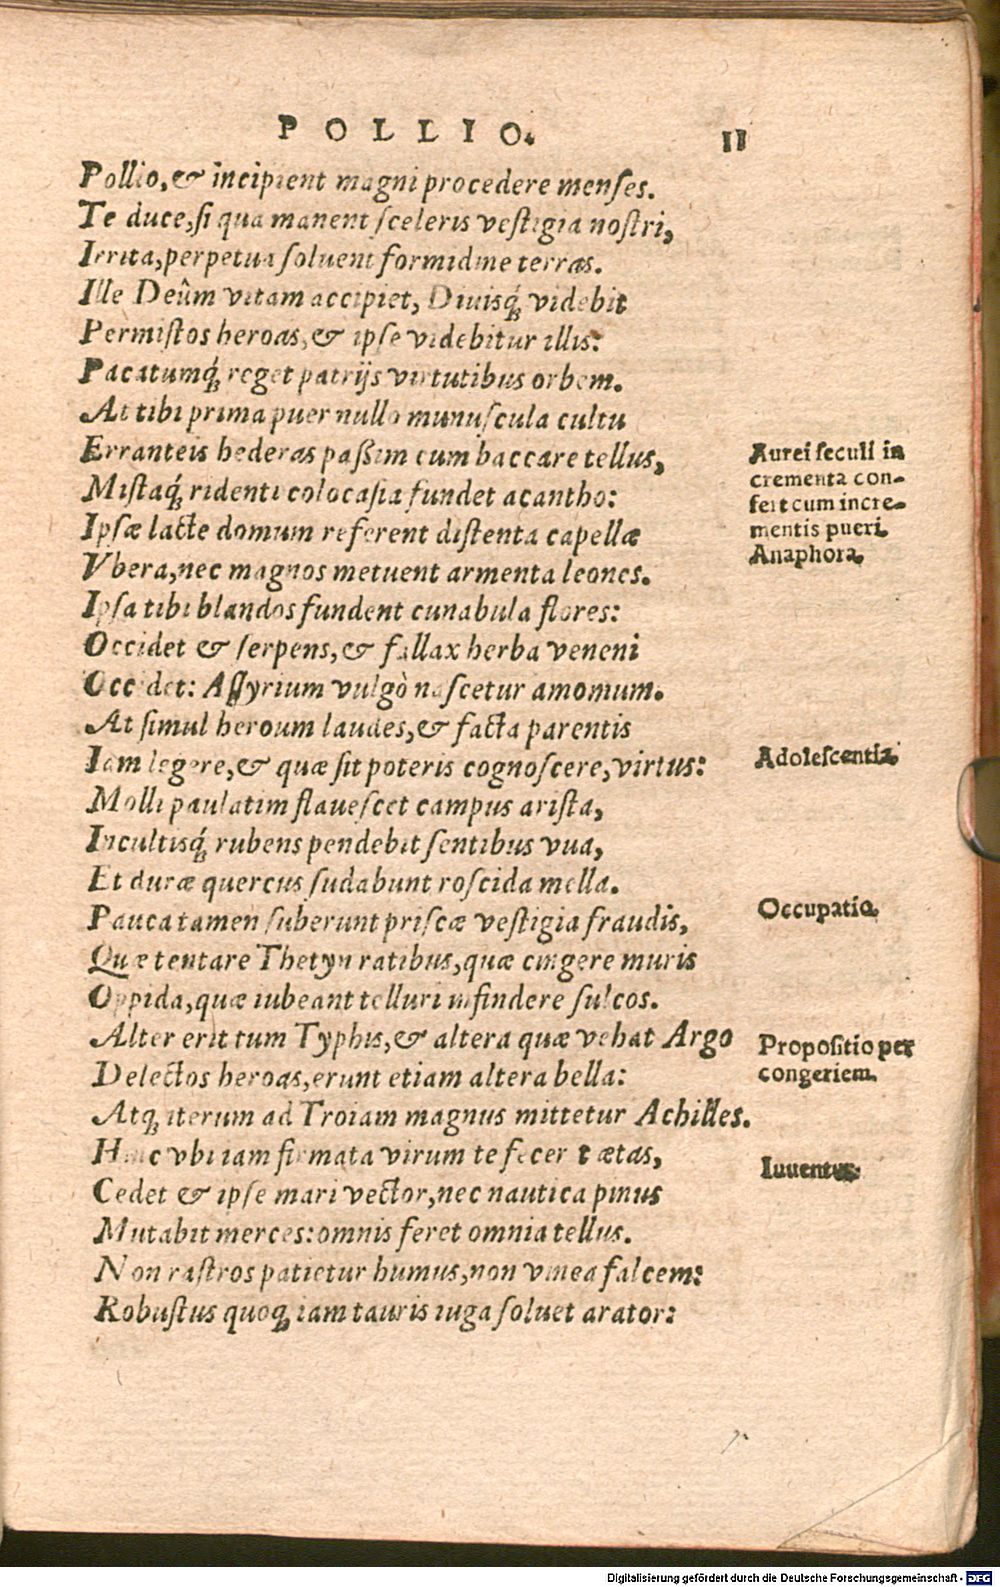 POLLIO. 11
Pollio, & incipient magni procedere menses.
Te duce, si qua manent sceleris vestigia nostri,
Irrita, perpetua soluent formidine terras.
Ille Deûm vitam accipiet, Diuisq́; videbit
Permistos heroas, & ipse videbitur illis:
Pacatumq́; reget patrijs virtutibus orbem.
At tibi prima puer nullo munuscula cultu
Erranteis hederas paßim cum baccare tellus,
Mistaq́; ridenti colocasia fundet acantho:
Ipsæ lacte domum referent distenta capellæ
Vbera, nec magnos metuent armenta leones.
Ipsa tibi blandos fundent cunabula flores:
Occidet & serpens, & fallax herba veneni
Occidet: Assyrium vulgò nascetur amomum.
At simul heroum laudes, & facta parentis
Iam legere, & quæ sit poteris cognoscere, virtus:
Molli paulatim flauescet campus arista,
Incultisq́; rubens pendebit sentibus vua,
Et duræ quercus sudabunt roscida mella.
Pauca tamen suberunt priscæ vestigia fraudis,
Quæ tentare Thetyn ratibus, quæ cingere muris
Oppida, quæ iubeant telluri infindere sulcos.
Alter erit tum Typhis, & altera quæ vehat Argo
Delectos heroas, erunt etiam altera bella:
Atq; iterum ad Troiam magnus mittetur Achilles.
Hinc vbi iam firmata virum te fecer t ætas,
Cedet & ipse mari vector, nec nautica pinus
Mutabit merces: omnis feret omnia tellus.
Non rastros patietur humus, non vinea falcem:
Robustus quoq; iam tauris iuga soluet arator:
Aurei seculi in
crementa con-
fert cum incre-
mentis pueri.
Anaphora.
Adolescentia.
Occupatio.
Propositio per
congeriem.
Iuuentus.
Digitalisierung gefördert durch die Deutsche Forschungsgemeinschaft - DFG